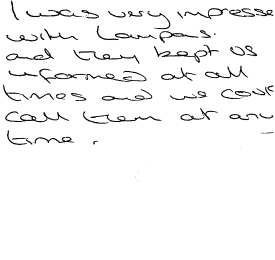 I was very impresse
with Lampans.
and they kept us
informed at all
times and we coul
call them at any
time.